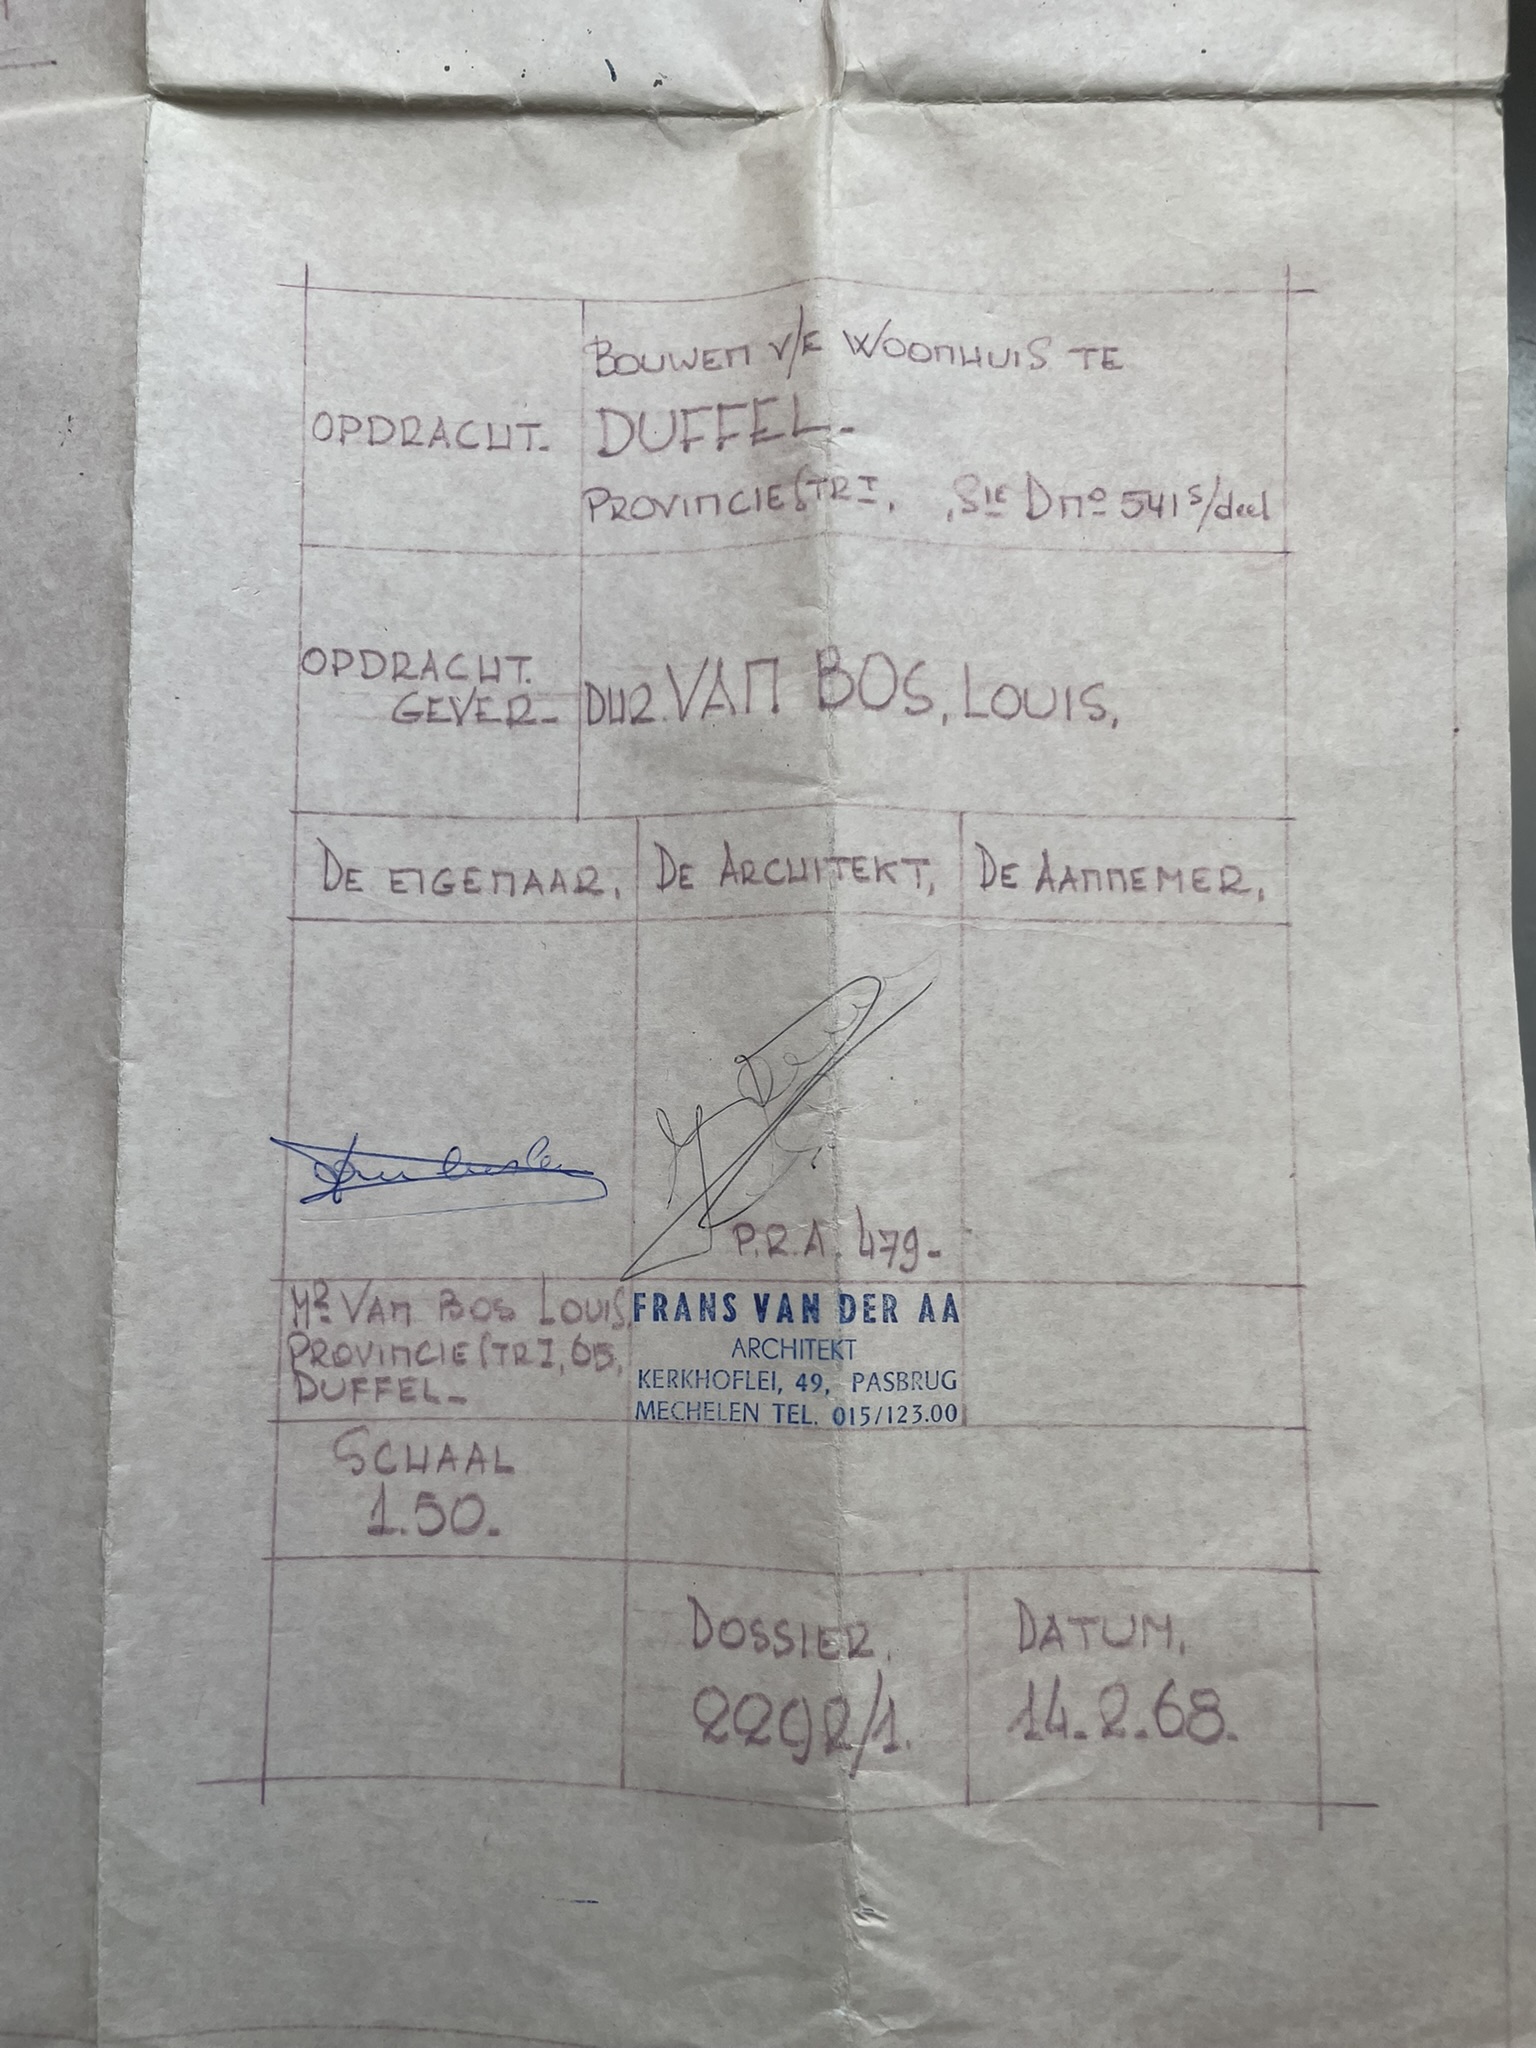 BOUWEN V/E WOONHUIS TE
OPDRACHT. DUFFEL-
PROVINCIESTRT, , SIE D No 541 S/deel
OPDRACHT.
GEVER- DHR. VAN BOS, LOUIS,
DE EIGENAAR, DE ARCHITEKT, DE AANNEMER,
P.R.A. 479-
MR VAN BOS LOUIS,
PROVINCIESTRT, 65,
DUFFEL-
FRANS VAN DER AA
ARCHITEKT
KERKHOFLEI, 49, PASBRUG
MECHELEN TEL. 015/123.00
SCHAAL
1.50.
DOSSIER, DATUM,
2292/1. 14-2-68-